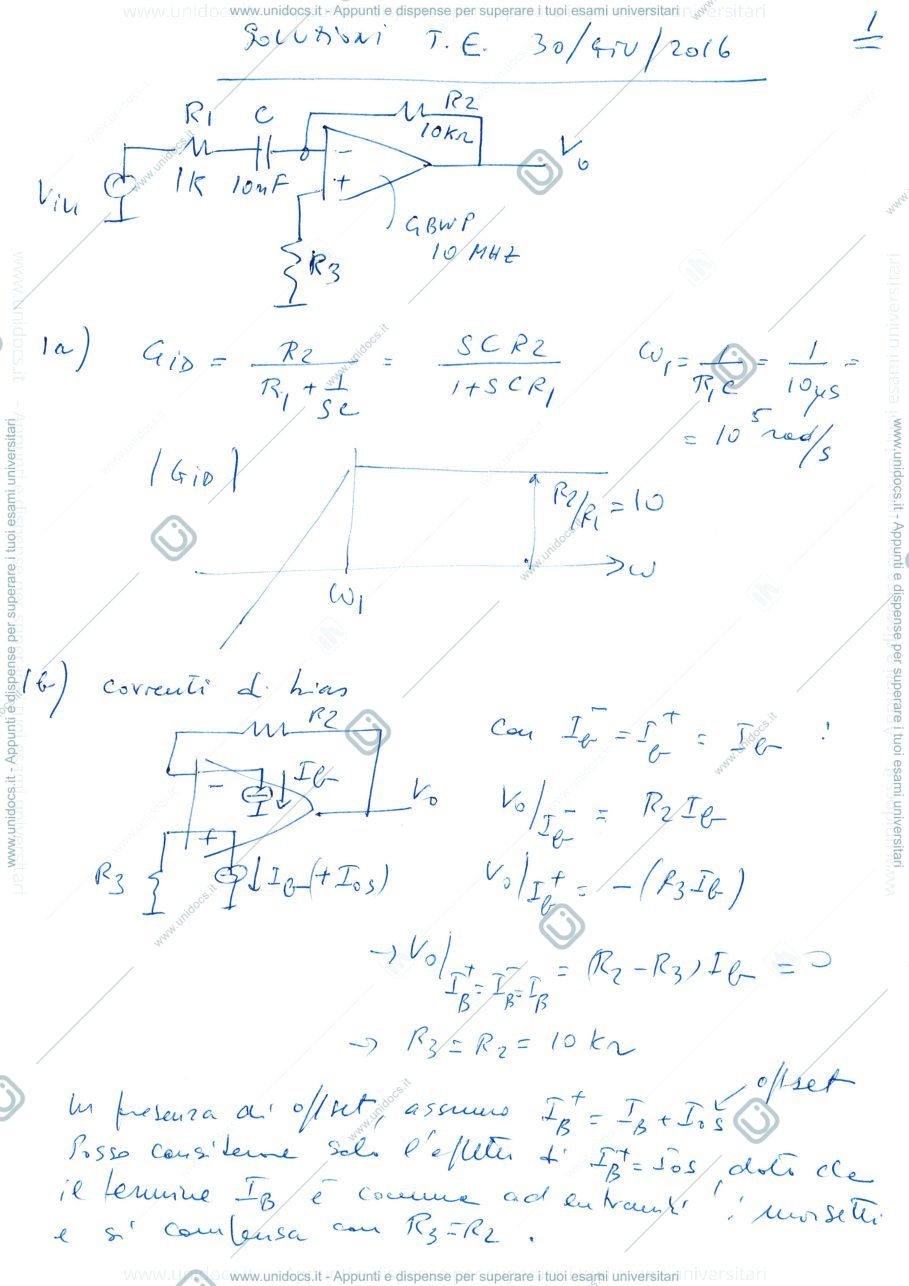 www.unidocs.it - Appunti e dispense per superare i tuoi esami universitari
SOLUZIONI T.E. 30/GIU/2016
1
R1 C R2
10KΩ
Vin 1K 10nF - + Vo
GBWP
10 MHZ
R3
1a) GID = R2 / (R1 + 1/SC) = SCR2 / (1+SCR1) ω1 = 1/(R1C) = 1/(10μs) =
= 10^5 rad/s
|GID|
R2/R1 = 10
ω
ω1
1b) correnti di bias
R2
con Ib- = Ib+ = Ib :
- Ib Vo
Vo/Ib- = R2Ib
+
R3 Ib(+Ios)
Vo/Ib+ = -(R3Ib)
→ Vo/IB+=IB-=IB = (R2-R3)Ib = 0
→ R3=R2= 10 kΩ
offset
In presenza di offset, assumo IB+ = IB + Ios
Posso considerare solo l'effetto di IB+=Ios, dato che
il termine IB è comune ad entrambi i morsetti
e si compensa con R3=R2.
www.unidocs.it - Appunti e dispense per superare i tuoi esami universitari